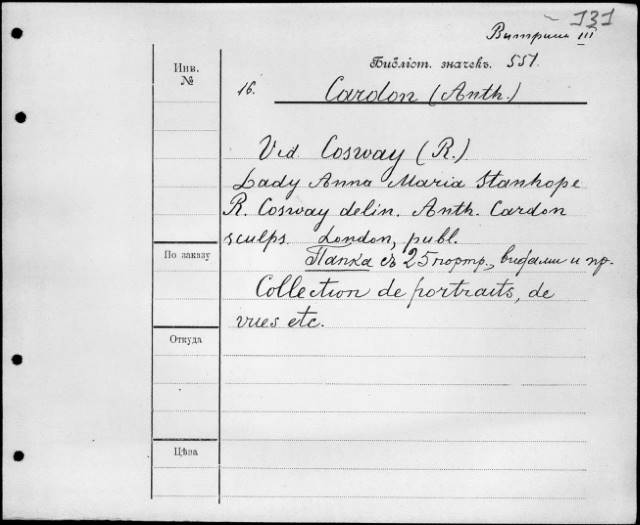 131
Витрина III
Библіот. значекъ. 551.
Инв.
№
16. Cardon (Anth.)
Vid. Cosway (R.)
Lady Anna Maria Stanhope
R. Cosway delin. Anth. Cardon
sculps. London, publ.
По заказу
Папка съ 25 портр., видами и пр.
Collection de portraits, de
vues etc.
Откуда
Цѣна